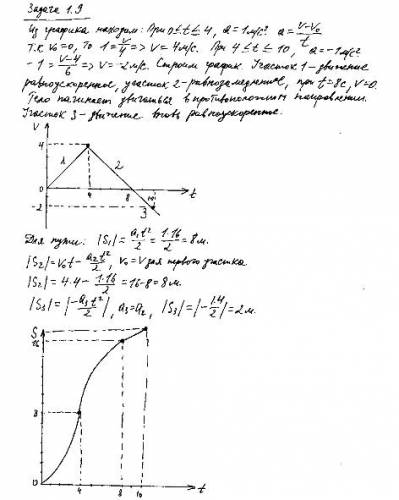 Задача 1.9
Из графика находим: При 0≤t≤4, a=1м/с² a=v-v₀/t
т.к v₀=0, то 1=v/4 => v=4м/с. При 4≤t≤10, a=-1м/с²
-1=v-4/6 => v=-2м/с. Строим график. Участок 1-движение
равноускоренное, участок 2-равнозамедленное, при t=8c, v=0.
Тело начинает двигаться в противоположном направлении.
Участок 3-движение вновь равноускоренное.
v
4
1 2
0 4 8 10 t
-2 3
Для пути: |S₁|=a₁t²/2=1·16/2=8м.
|S₂|=v₀t-a₂t²/2, v₀=v для первого участка
|S₂|=4·4-1·16/2=16-8=8м.
|S₃|=|-a₃t²/2|, a₃=a₂, |S₃|=|-1·4/2|=2м.
S
16
8
0 4 8 10 t